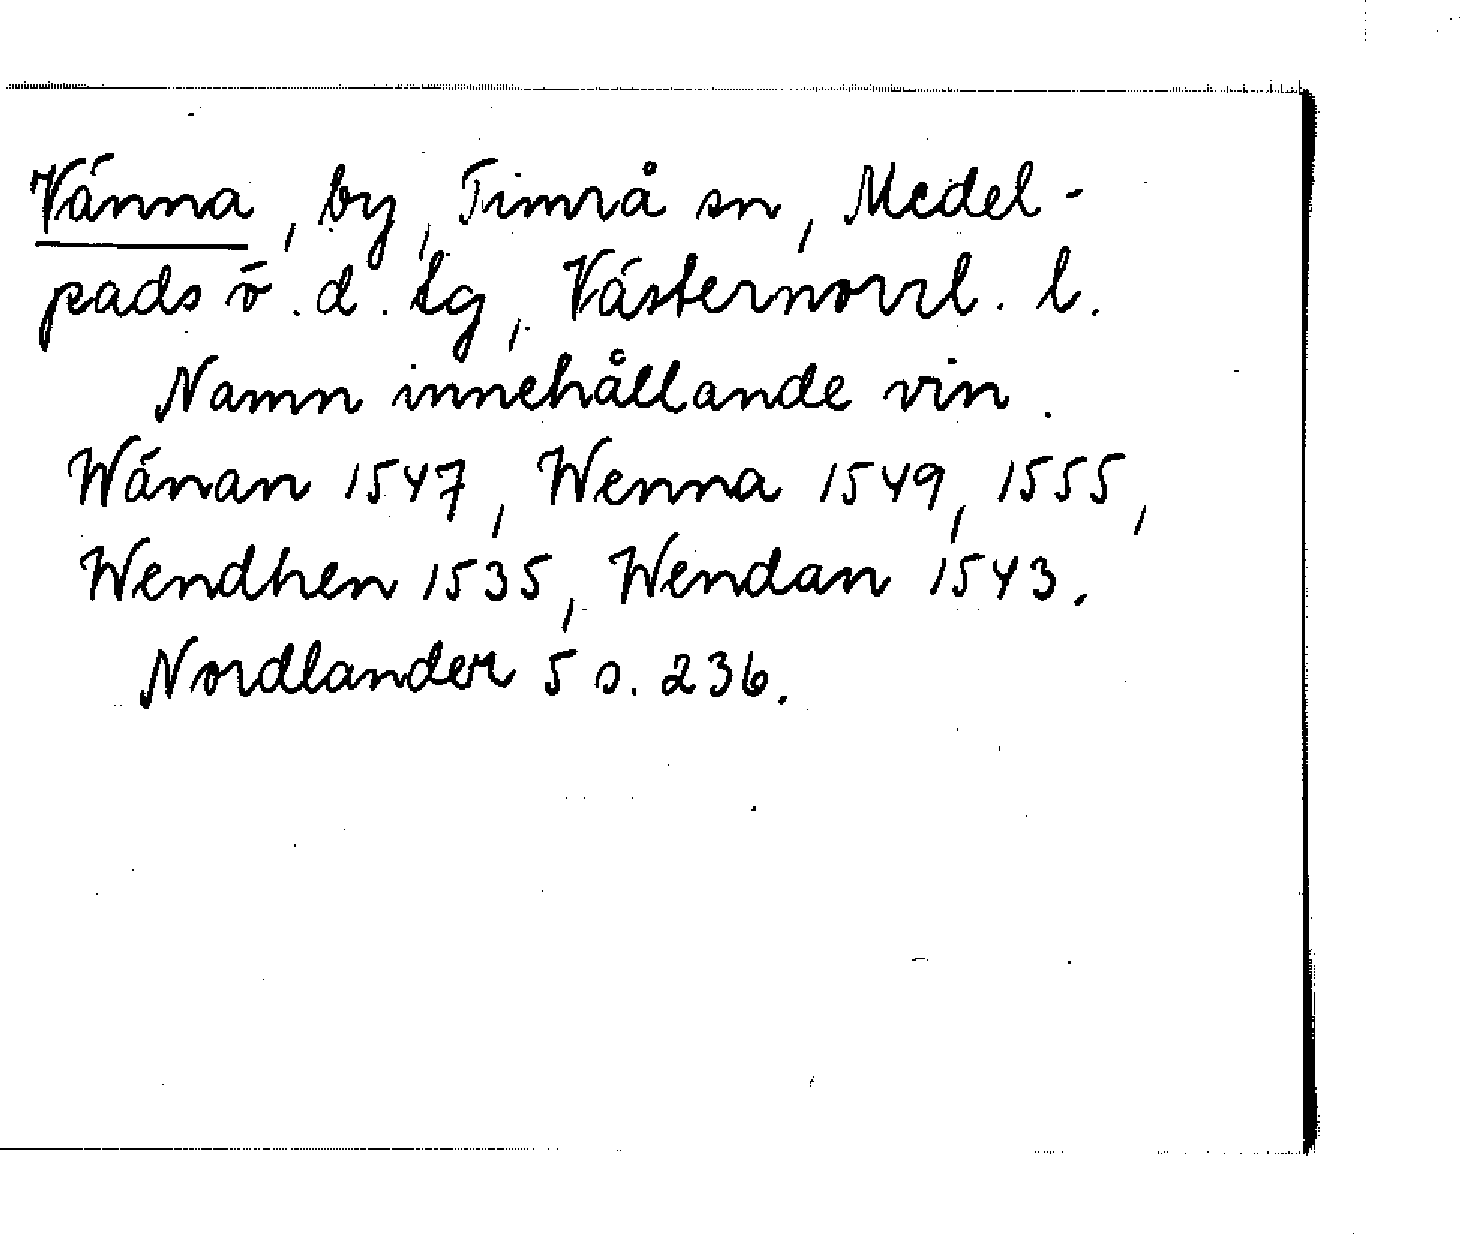 Vänna, by, Timrå sn, Medel-
pads ö. d. tg, Västernorrl. l.
Namn innehållande vin.
Wänan 1547, Wenna 1549, 1555,
Wendhen 1535, Wendan 1543.
Nordlander 5 s. 236.